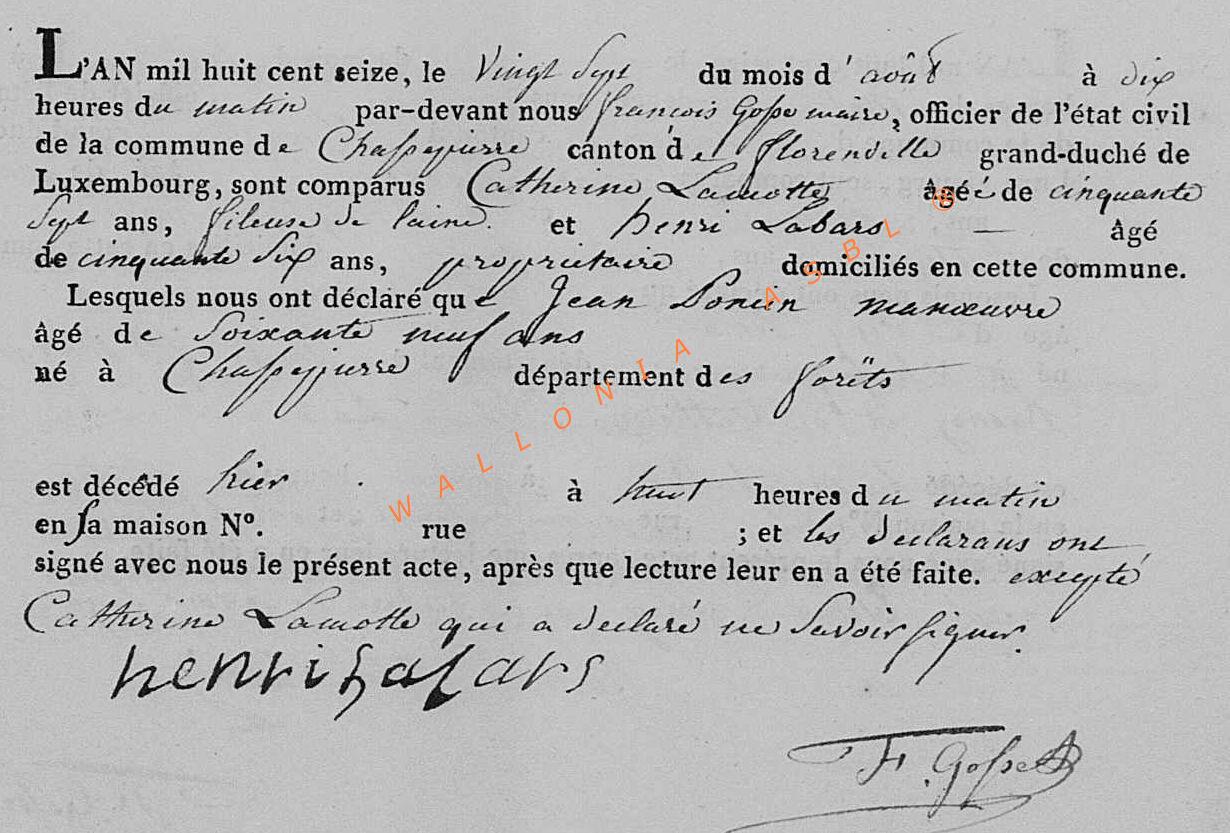 L'AN mil huit cent seize, le Vingt Sept du mois d'août à dix
heures du matin par-devant nous françois Gosse maire, officier de l'état civil
de la commune de Chassepierre canton de florenville grand-duché de
Luxembourg, sont comparus Catherine Lamotte âgéé de cinquante
Sept ans, fileuse de laine et henri Labars — âgé
de cinquante Six ans, proprietaire domiciliés en cette commune.
Lesquels nous ont déclaré que Jean Poncin manœuvre
âgé de Soixante neuf ans
né à Chassepierre département des forêts
est décédé hier à huit heures du matin
en sa maison Nº. rue ; et les declarans ont
signé avec nous le présent acte, après que lecture leur en a été faite. excepté
Catherine Lamotte qui a declaré ne Savoir signer.
henri
F. Gosse
WALLONIA ASBL ©